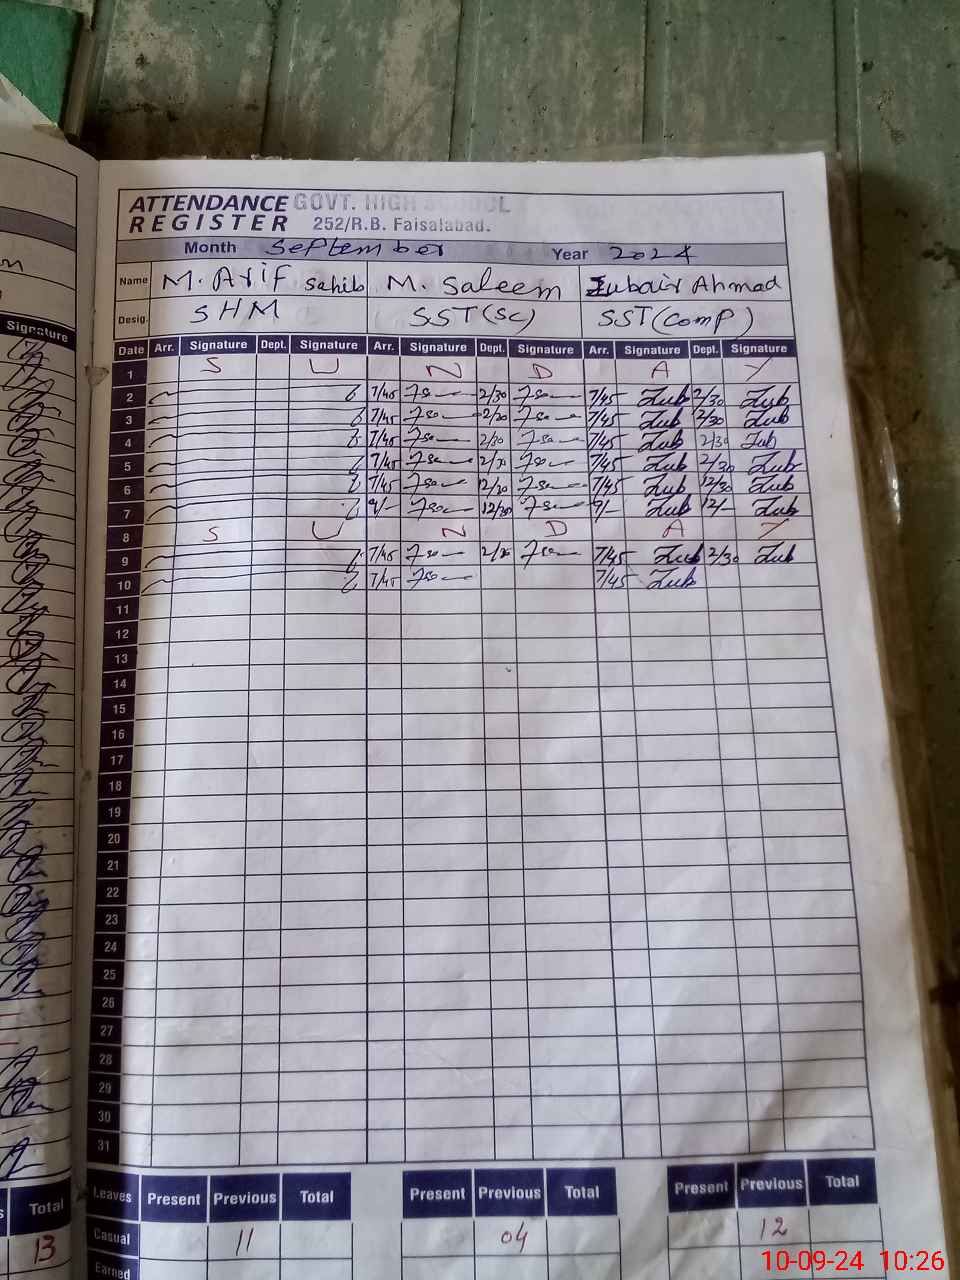 ATTENDANCE GOVT. HIGH SCHOOL
REGISTER 252/R.B. Faisalabad.
Month September Year 2024
Name M. Arif Sahib M. Saleem Zubair Ahmad
Desig. SHM SST(SC) SST(Comp)
Signature
Date Arr. Signature Dept. Signature Arr. Signature Dept. Signature Arr. Signature Dept. Signature
1 S U N D A Y
2 7/45 2/30 7/45 Zub 2/30 Zub
3 7/45 2/30 7/45 Zub 2/30 Zub
4 7/45 2/30 7/45 Zub 2/30 Zub
5 7/45 2/30 7/45 Zub 2/30 Zub
6 7/45 12/30 7/45 Zub 12/30 Zub
7 9/- 12/30 9/- Zub 12/- Zub
8 S U N D A Y
9 7/45 2/30 7/45 Zub 2/30 Zub
10 7/45 7/45 Zub
11
12
13
14
15
16
17
18
19
20
21
22
23
24
25
26
27
28
29
30
31
Total Leaves Present Previous Total Present Previous Total Present Previous Total
13 Casual 11 04 12
Earned
10-09-24 10:26